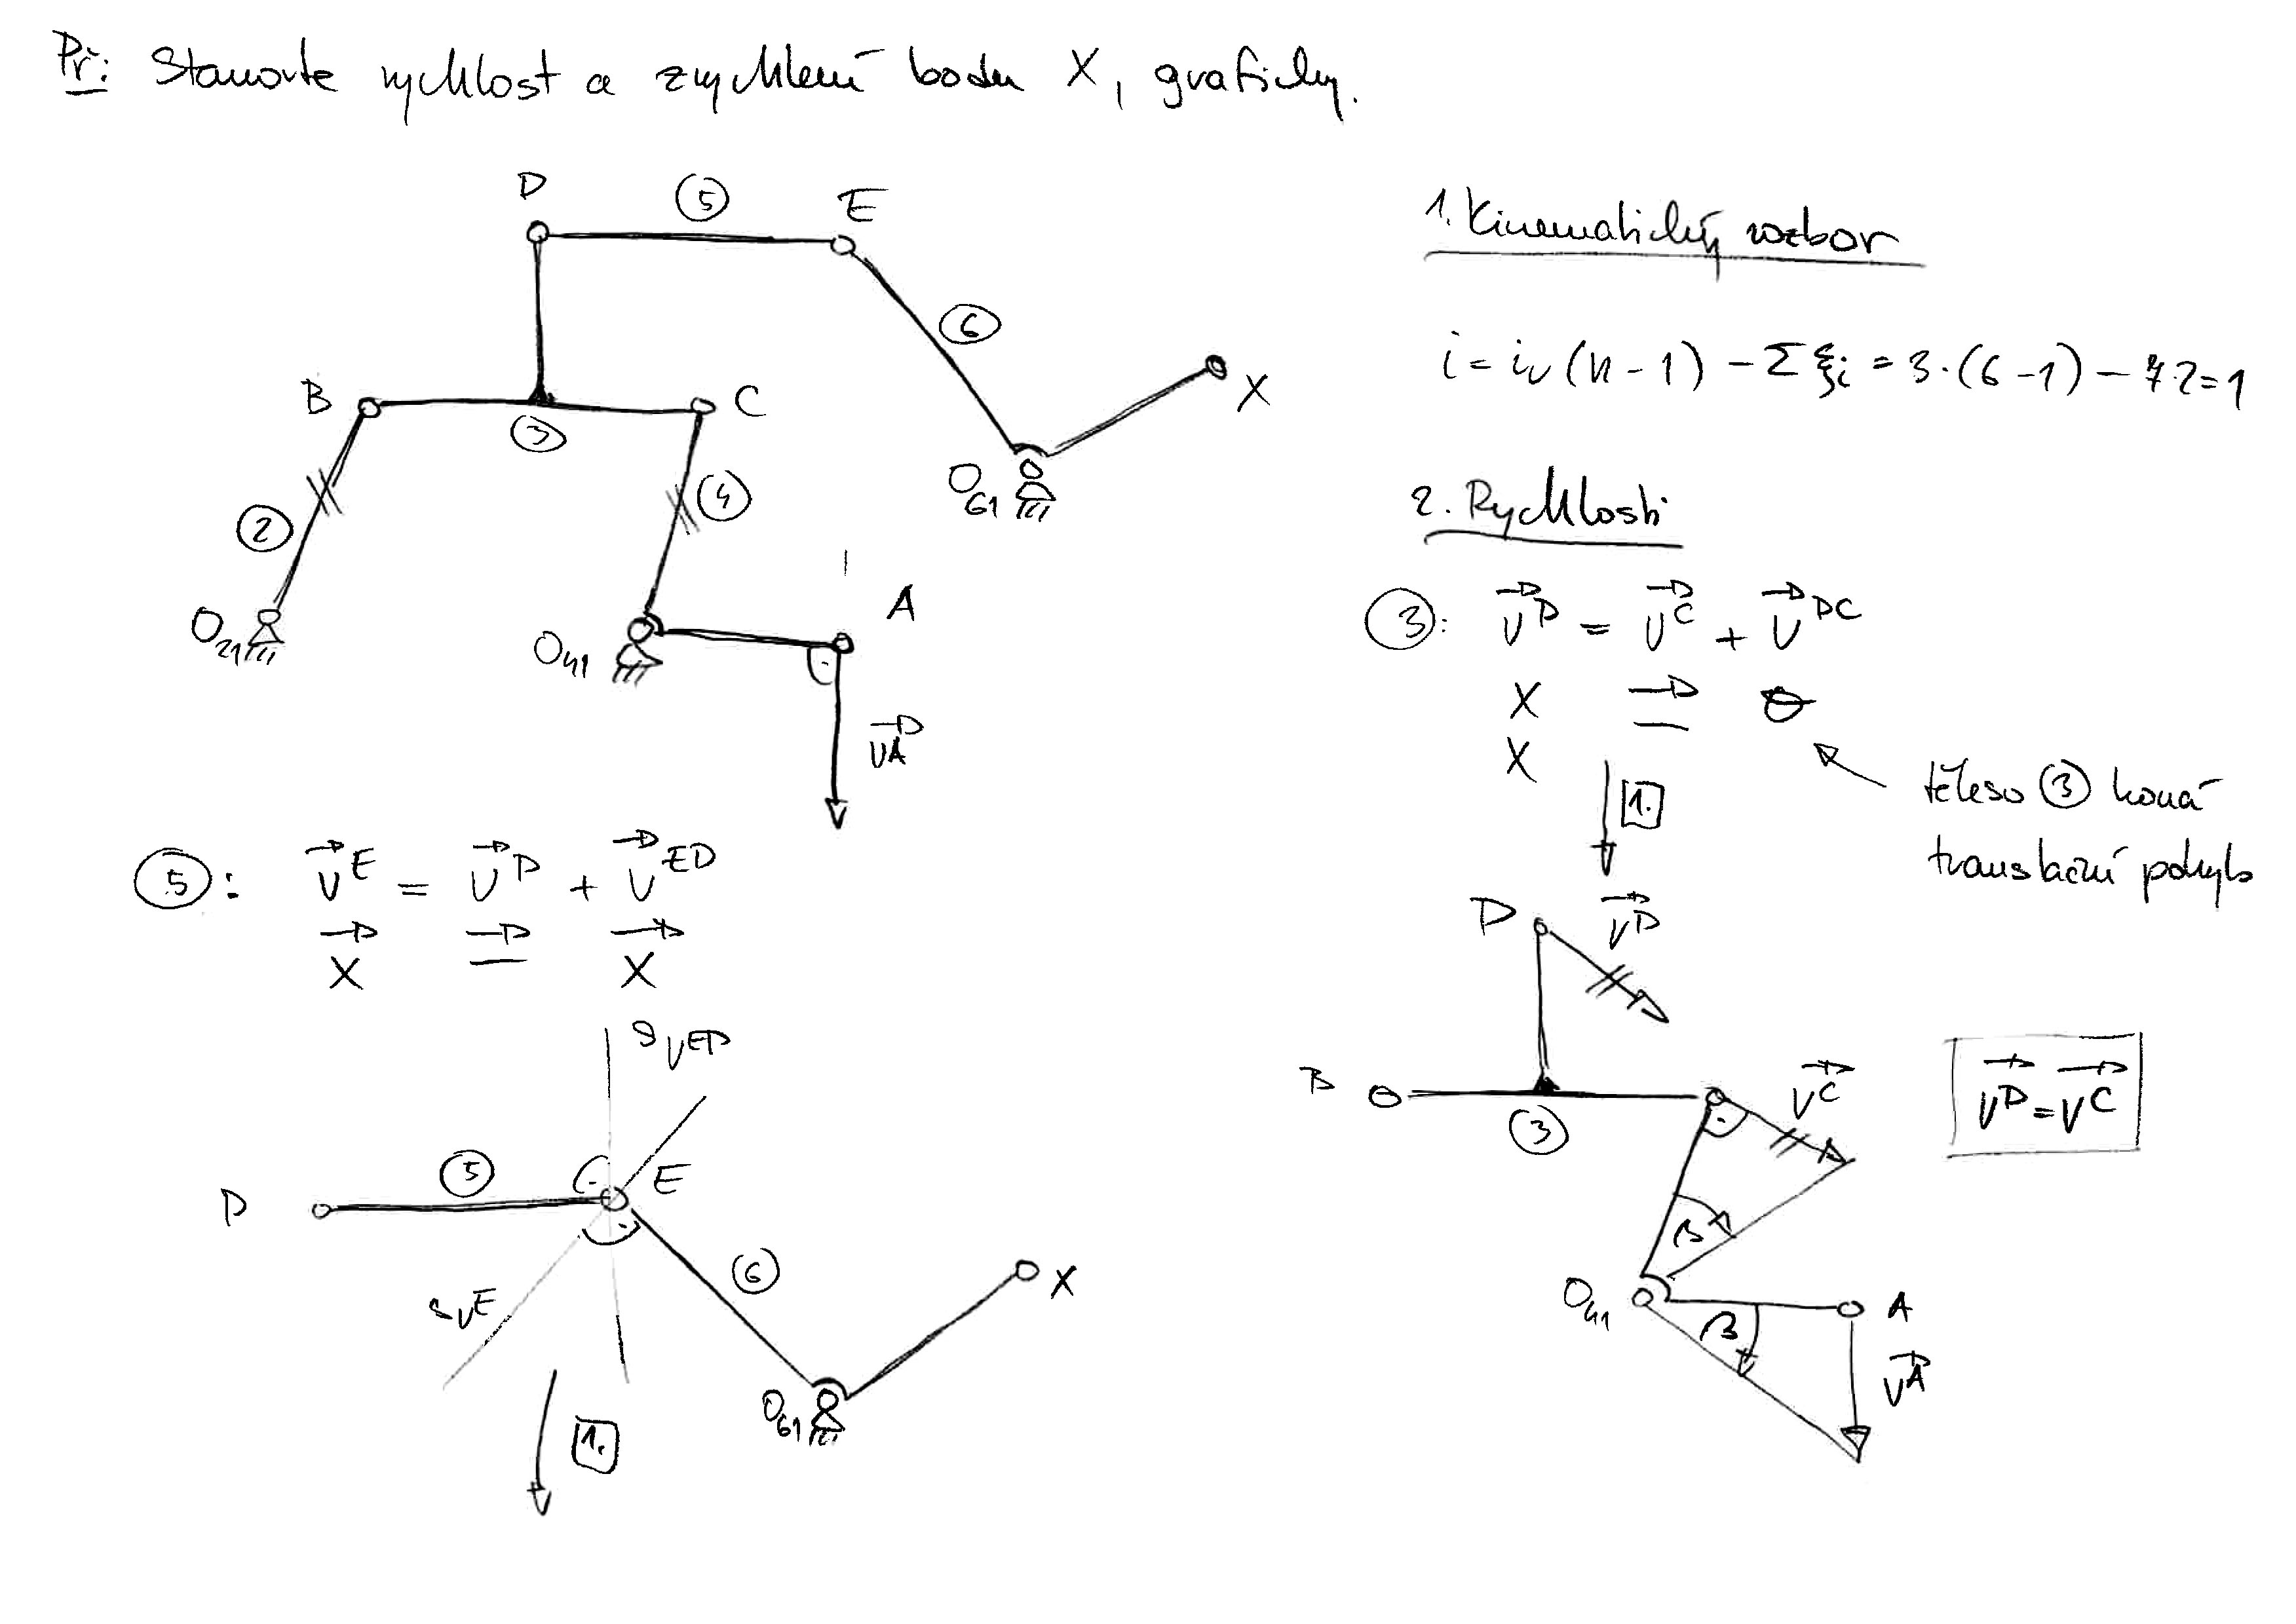 Př: Stanovte rychlost a zrychlení bodu X, graficky.
D 5 E
6
B C
3
X
2 4
O61
O21 O41 A
vA
1. Kinematický rozbor
i = iv (n - 1) - Σ ξi = 3·(6 - 1) - 7·2 = 1
2. Rychlosti
3: vD = vC + vDC
X
X
1.
těleso 3 koná
translační pohyb
D vD
B vC
3
vD = vC
β
O41 A
β vA
5: vE = vD + vED
X X
svED
D 5 E
svE 6 X
O61
1.